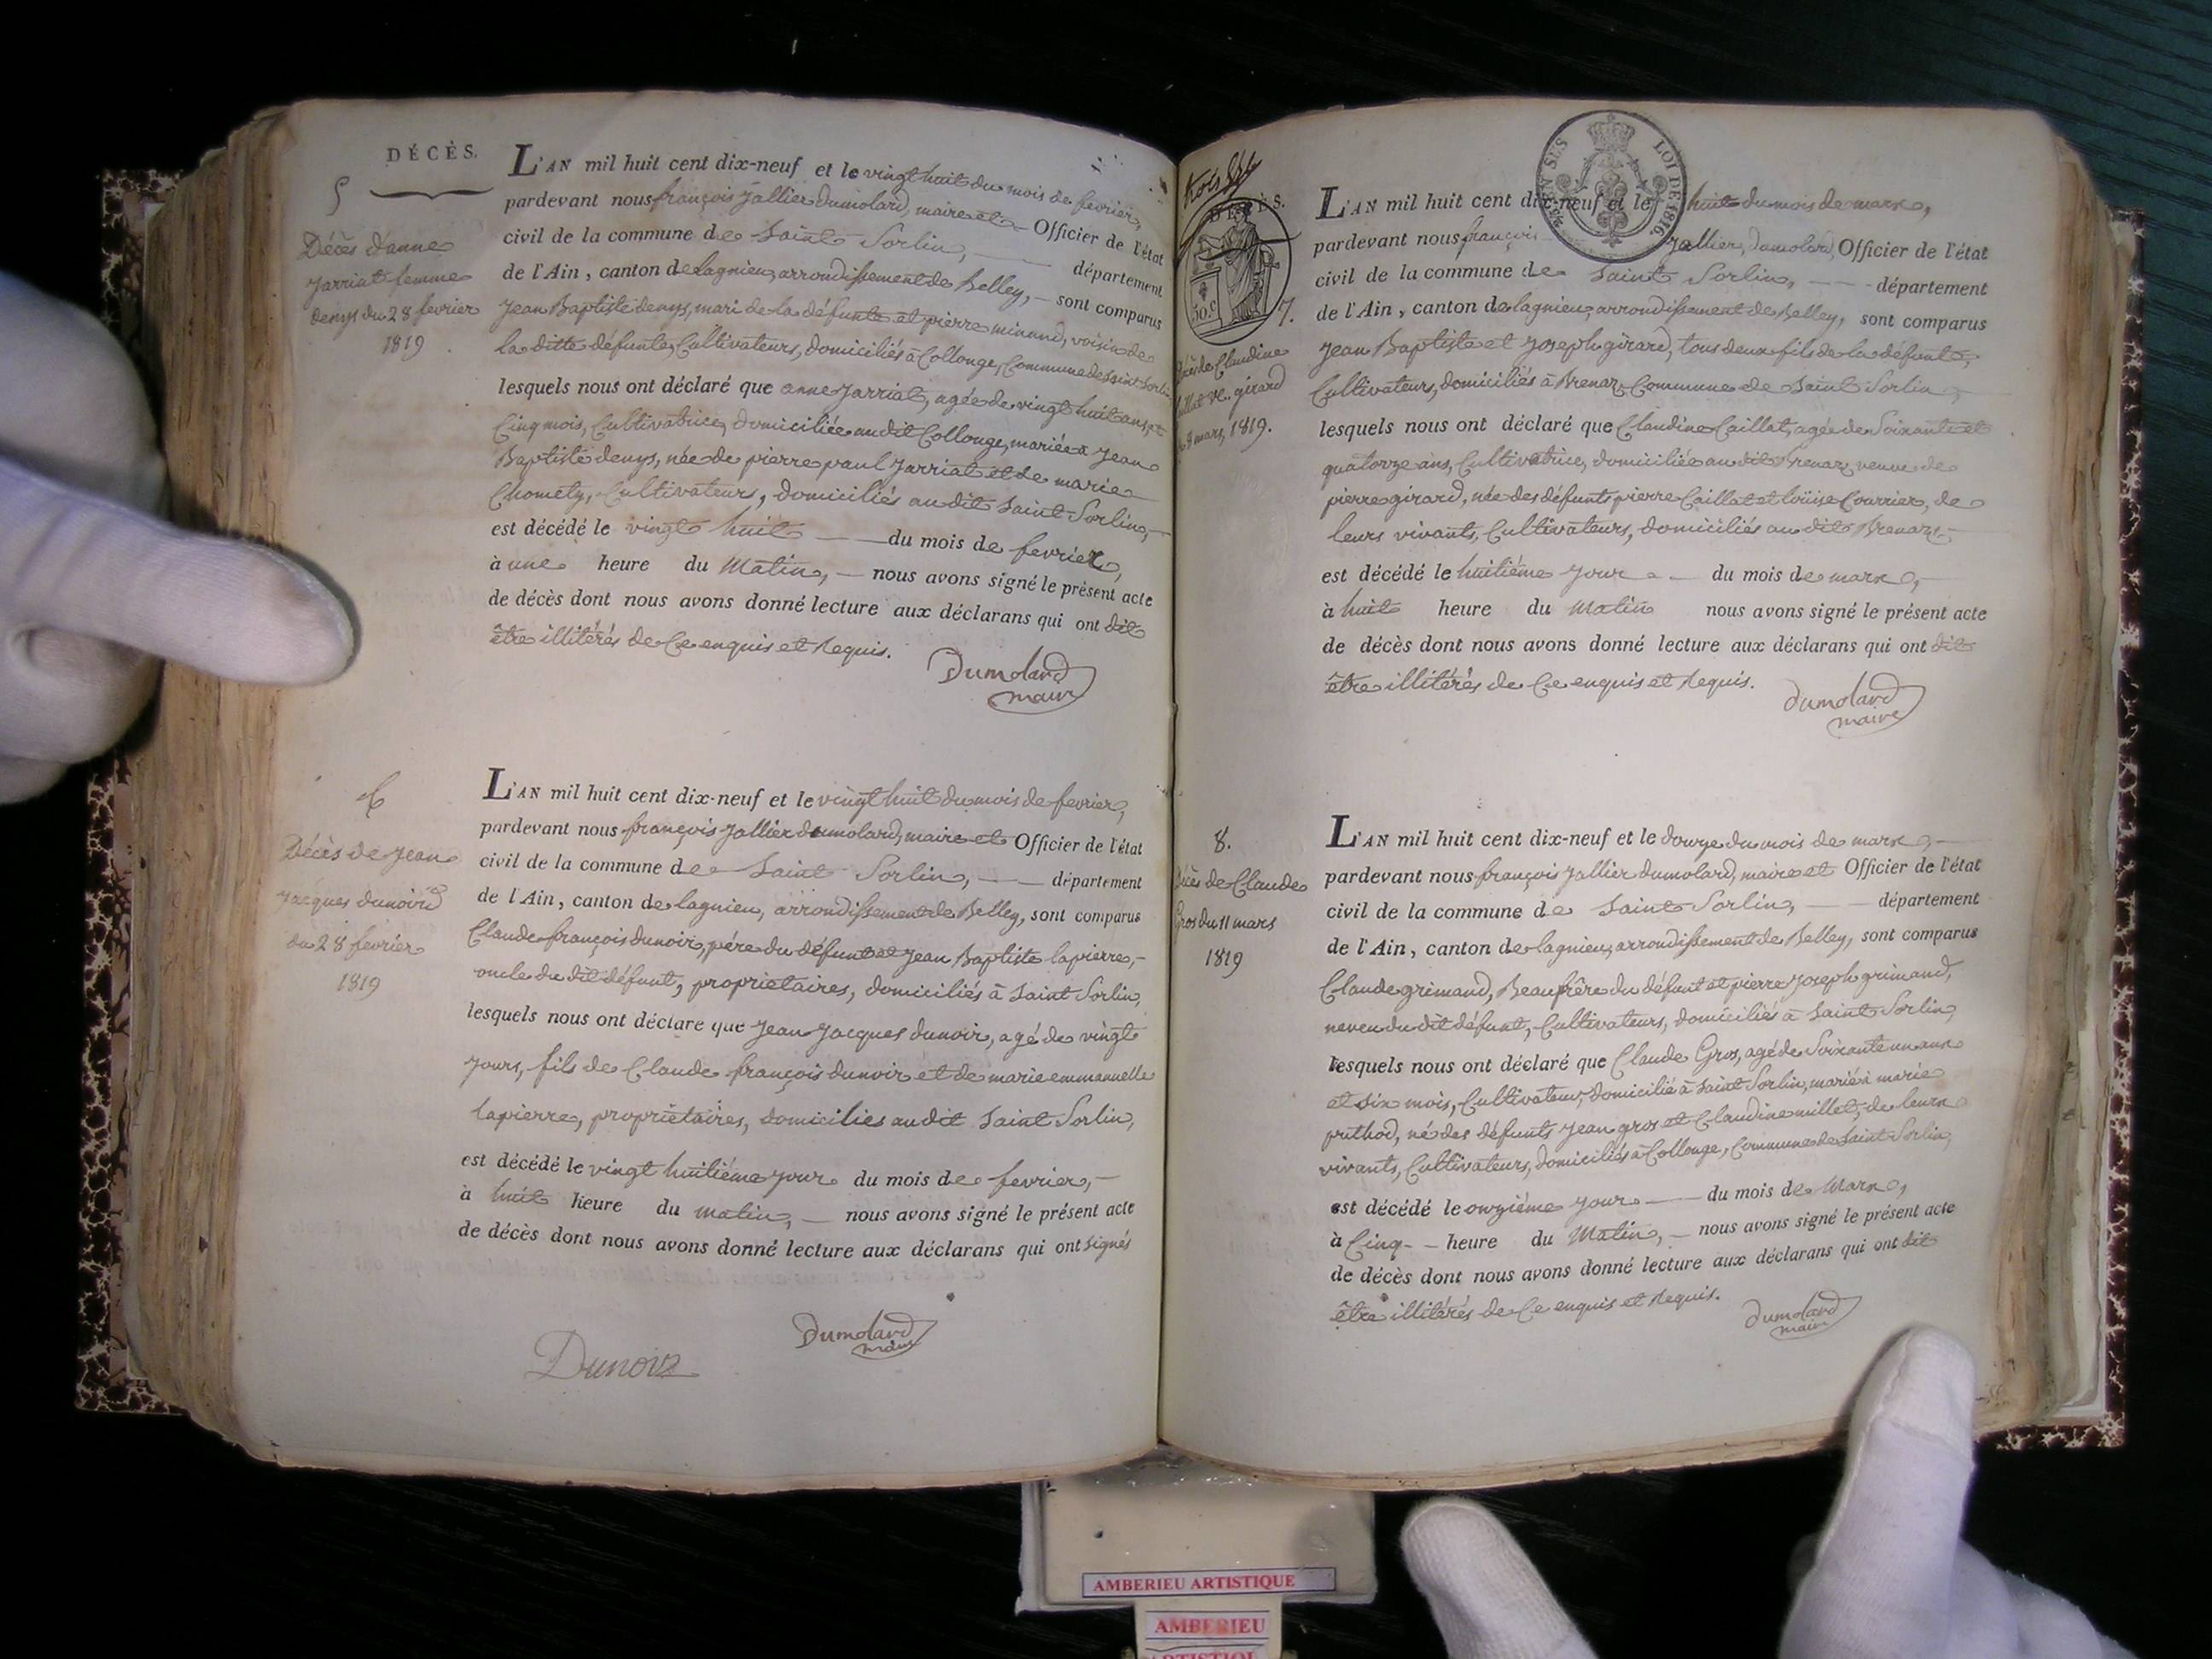 DÉCÈS.
5
Décès d'anne
Jarriat femme
denys du 28 fevrier
1819
L'AN mil huit cent dix-neuf et le vingt huit du mois de fevrier,
pardevant nous françois Jallier dumolard, maire et Officier de l'état
civil de la commune de Saint Sorlin, département
de l'Ain, canton de Lagnieu, arrondissement de Belley, sont comparus
Jean Baptiste denys, mari de la défunte et pierre minand, voisin de
la ditte défunte, Cultivateurs, domiciliés à Collonge, Commune de Saint Sorlin
lesquels nous ont déclaré que anne Jarriat, agée de vingt huit ans, et
Cinq mois, Cultivatrice, domiciliée au dit Collonge, mariée à Jean
Baptiste denys, née de pierre paul Jarriat et de marie
Chomety, Cultivateurs, domiciliés au dit Saint Sorlin,
est décédé le vingt huit du mois de fevrier,
à une heure du Matin, nous avons signé le présent acte
de décès dont nous avons donné lecture aux déclarans qui ont dit
être illitérés de Ce enquis et Requis.
Dumolard
maire
6
Décès de Jean
Jacques dunoird
du 28 fevrier
1819
L'AN mil huit cent dix-neuf et le vingt huit du mois de fevrier,
pardevant nous françois Jallier dumolard, maire et Officier de l'état
civil de la commune de Saint Sorlin, département
de l'Ain, canton de lagnieu, arrondissement de Belley, sont comparus
Claude françois dunoir, père du défunt et Jean Baptiste lapierre,
oncle du dit défunt, proprietaires, domiciliés à Saint Sorlin,
lesquels nous ont déclaré que Jean Jacques dunoir, agé de vingt
Jours, fils de Claude françois dunoir et de marie emmanuelle
lapierre, propriétaires, domiciliés au dit Saint Sorlin,
est décédé le vingt huitième jour du mois de fevrier,
à huit heure du matin, nous avons signé le présent acte
de décès dont nous avons donné lecture aux déclarans qui ont signés
Dumolard
maire
Dunoir
DÉCÈS.
50.C
7.
Décès de Claudine
Caillat ve. girard
8 mars 1819.
LOI DE 1816.
L'AN mil huit cent dix-neuf et le huit du mois de mars,
pardevant nous françois Jallier, dumolard, Officier de l'état
civil de la commune de Saint Sorlin, département
de l'Ain, canton de lagnieu, arrondissement de Belley, sont comparus
Jean Baptiste et Joseph girard, tous deux fils de la défunte,
Cultivateurs, domiciliés à Brenaz, Commune de Saint Sorlin,
lesquels nous ont déclaré que Claudine Caillat, agée de Soixante et
quatorze ans, Cultivatrice, domiciliée au dit Brenaz, veuve de
pierre girard, née des défunts pierre Caillat et loüise Courrier, de
leurs vivants, Cultivateurs, domiciliés au dit Brenaz,
est décédé le huitième jour du mois de mars,
à huit heure du Matin nous avons signé le présent acte
de décès dont nous avons donné lecture aux déclarans qui ont dit
être illitérés de Ce enquis et Requis.
dumolard
maire
8.
Décès de Claude
Gros du 11 mars
1819
L'AN mil huit cent dix-neuf et le douze du mois de mars,
pardevant nous françois Jallier dumolard, maire et Officier de l'état
civil de la commune de Saint Sorlin, département
de l'Ain, canton de lagnieu, arrondissement de Belley, sont comparus
Claude grimand, Beaufrère du défunt et pierre Joseph grimand,
neveu du dit défunt, Cultivateurs, domiciliés à Saint Sorlin,
lesquels nous ont déclaré que Claude Gros, agé de Soixante un ans
et six mois, Cultivateur, domicilié à Saint Sorlin, marié à marie
prithod, né des défunts Jean gros et Claudine millet, de leurs
vivants, Cultivateurs, domiciliés à Collonge, Commune de Saint Sorlin,
est décédé le onzième jour du mois de Mars,
à Cinq heure du Matin, nous avons signé le présent acte
de décès dont nous avons donné lecture aux déclarans qui ont dit
être illitérés de Ce enquis et Requis.
dumolard
maire
AMBERIEU ARTISTIQUE
AMBERIEU
ARTISTIQUE